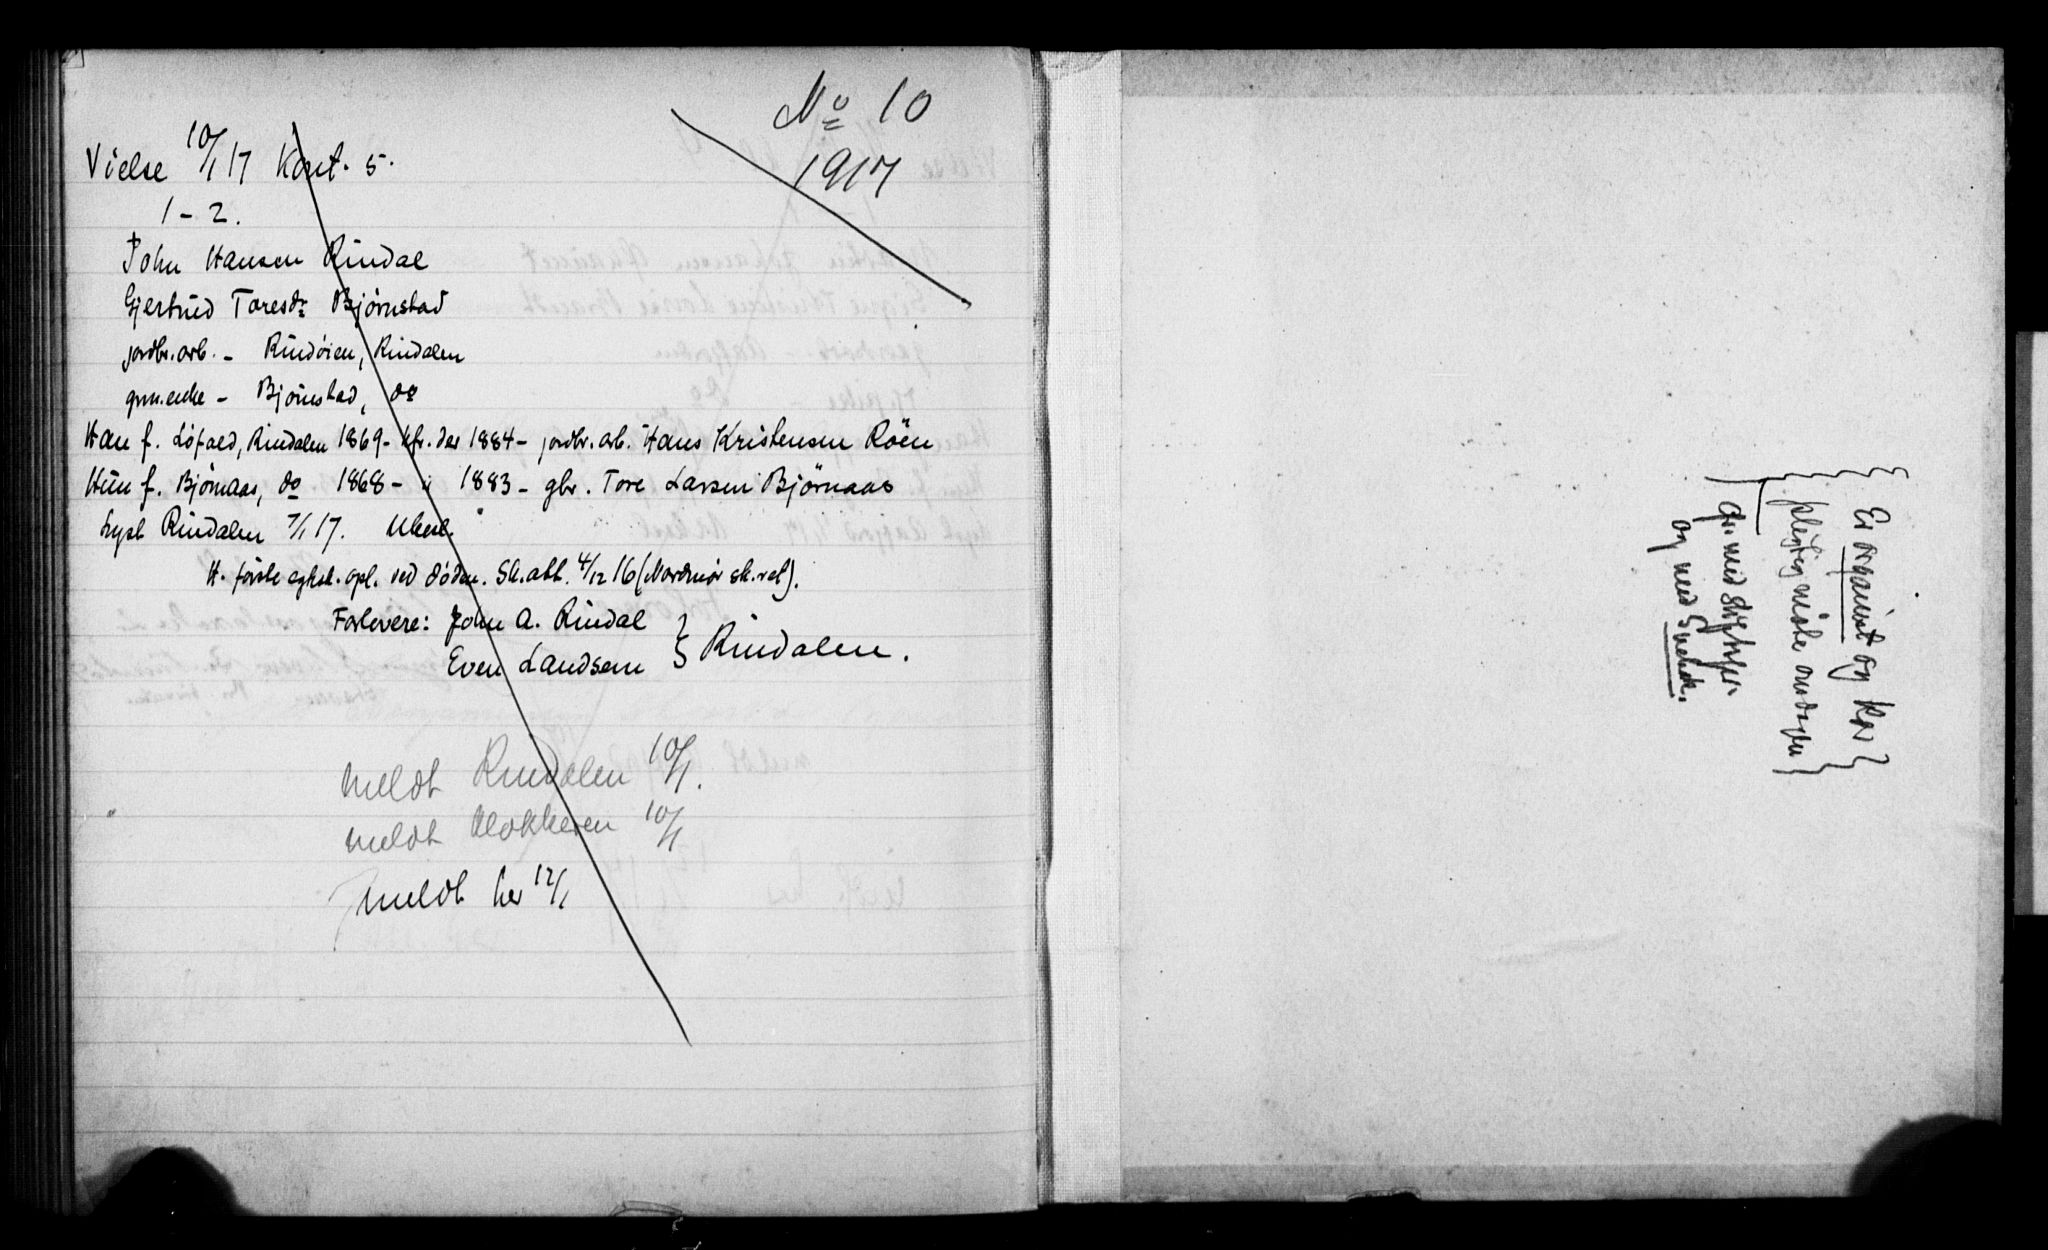 No 10
1917
Vielse 10/1 17 Kont. 5.
1 - 2.
John Hansen Rindal
Gjertrud Toresdr Bjørnstad
jordbr. arb. - Rindöien, Rindalen
grm. enke - Bjørnstad, do
Han f. Löfald, Rindalen 1869 - kfr. der 1884 - jordbr. arb. Hans Kristensen Röen
Hun f. Bjørnaas, do 1868 - " 1883 - gbr. Tore Larsen Bjørnaas
Lyst Rindalen 7/1 17. Ubesl.
H. förste egtsk. opl. ved döden. Sk. att. 4/12 16 (Nordmør sk. ret).
Forlovere: John A. Rindal
Even Landsem } Rindalen.
meldt Rindalen 10/1.
meldt klokkeren 10/1
meldt her 12/1
Er organist og Kgr
pligtig møte
og med